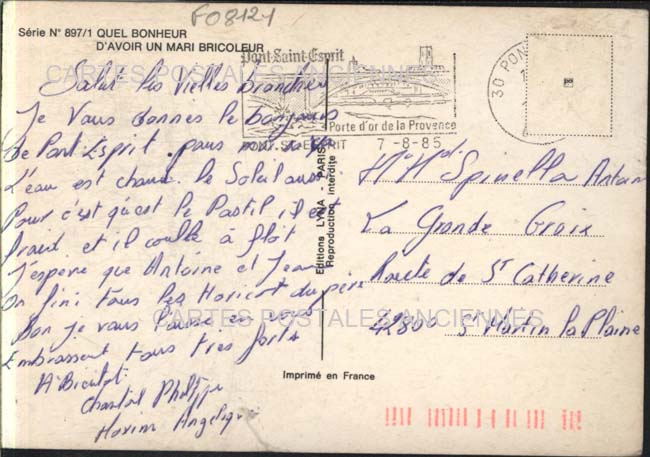 F08121
Série N° 897/1 QUEL BONHEUR
D'AVOIR UN MARI BRICOLEUR
CARTES POSTALES ANCIENNES
Salut les vielles Branches
Je vous donnes le bonjour
De Pont-Esprit
L'eau est chaude le Soleil aussi
Pour c'est qu'est le Pastil il est
froid et il coulle à flôt
J'espere que Antoine et Jean
On fini tous les Haricot du père
Bon je vous laisse en vous
Embrassent tous tres forts
A Bientot
Chantal Philippe
Maxim Angelique
Pont-Saint-Esprit
Porte d'or de la Provence
PONT-ST-ESPRIT 7-8-85
30 PON
Editions LYNA PARIS
Reproduction interdite
Spinella Antoin
La Grande Croix
Route de St Catherine
42800 St Martin la Plaine
CARTES POSTALES ANCIENNES
Imprimé en France